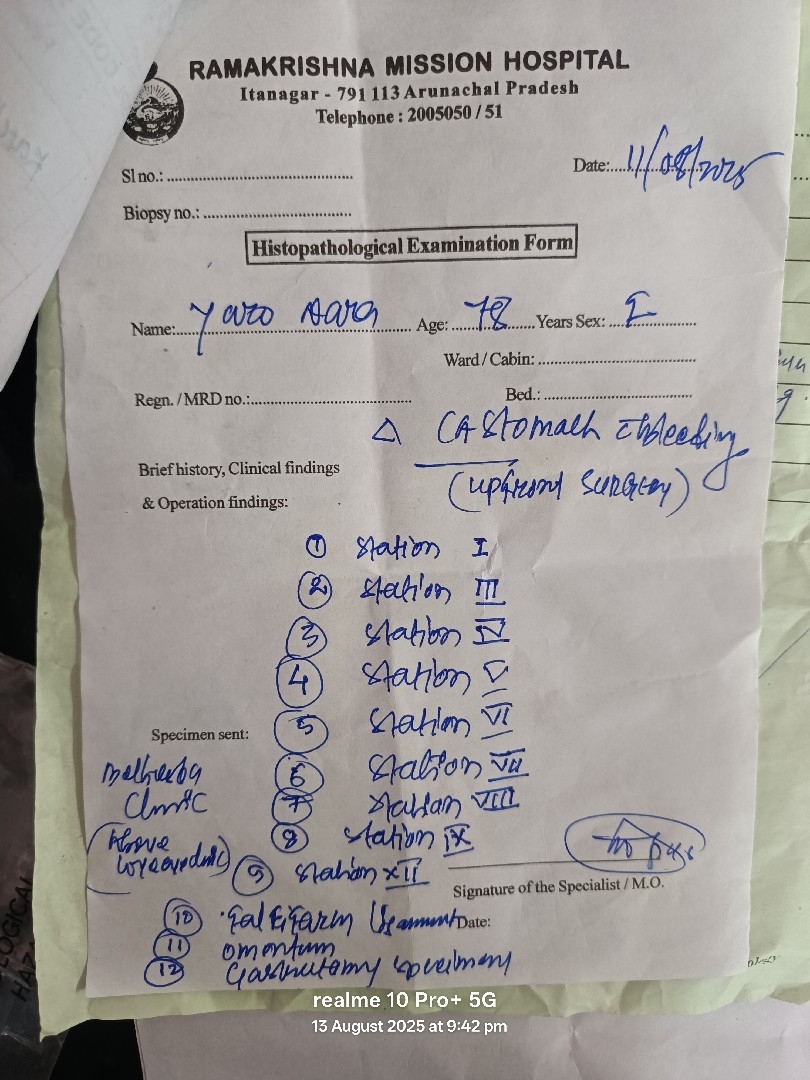 RAMAKRISHNA MISSION HOSPITAL
Itanagar - 791 113 Arunachal Pradesh
Telephone : 2005050 / 51
Sl no.: ..........
Date:.... 11/08/2025
Biopsy no.: ..........
Histopathological Examination Form
Name: Yaro Age: 78 Years Sex:
Ward / Cabin: ..........
Regn. / MRD no.: ..........
Bed.: ..........
△ CA Stomach Bleeding
Brief history, Clinical findings
(upfront surgery)
& Operation findings:
① Station I
② Station III
③ Station IV
④ Station V
⑤ Station VI
Specimen sent:
⑥ Station VII
Clinic
⑦ Station VIII
(Above
⑧ Station IX
⑨ Station XII
Signature of the Specialist / M.O.
⑩ Falciform Ligament
Date:
⑪ omentum
⑫ Gastrectomy specimen
realme 10 Pro+ 5G
13 August 2025 at 9:42 pm